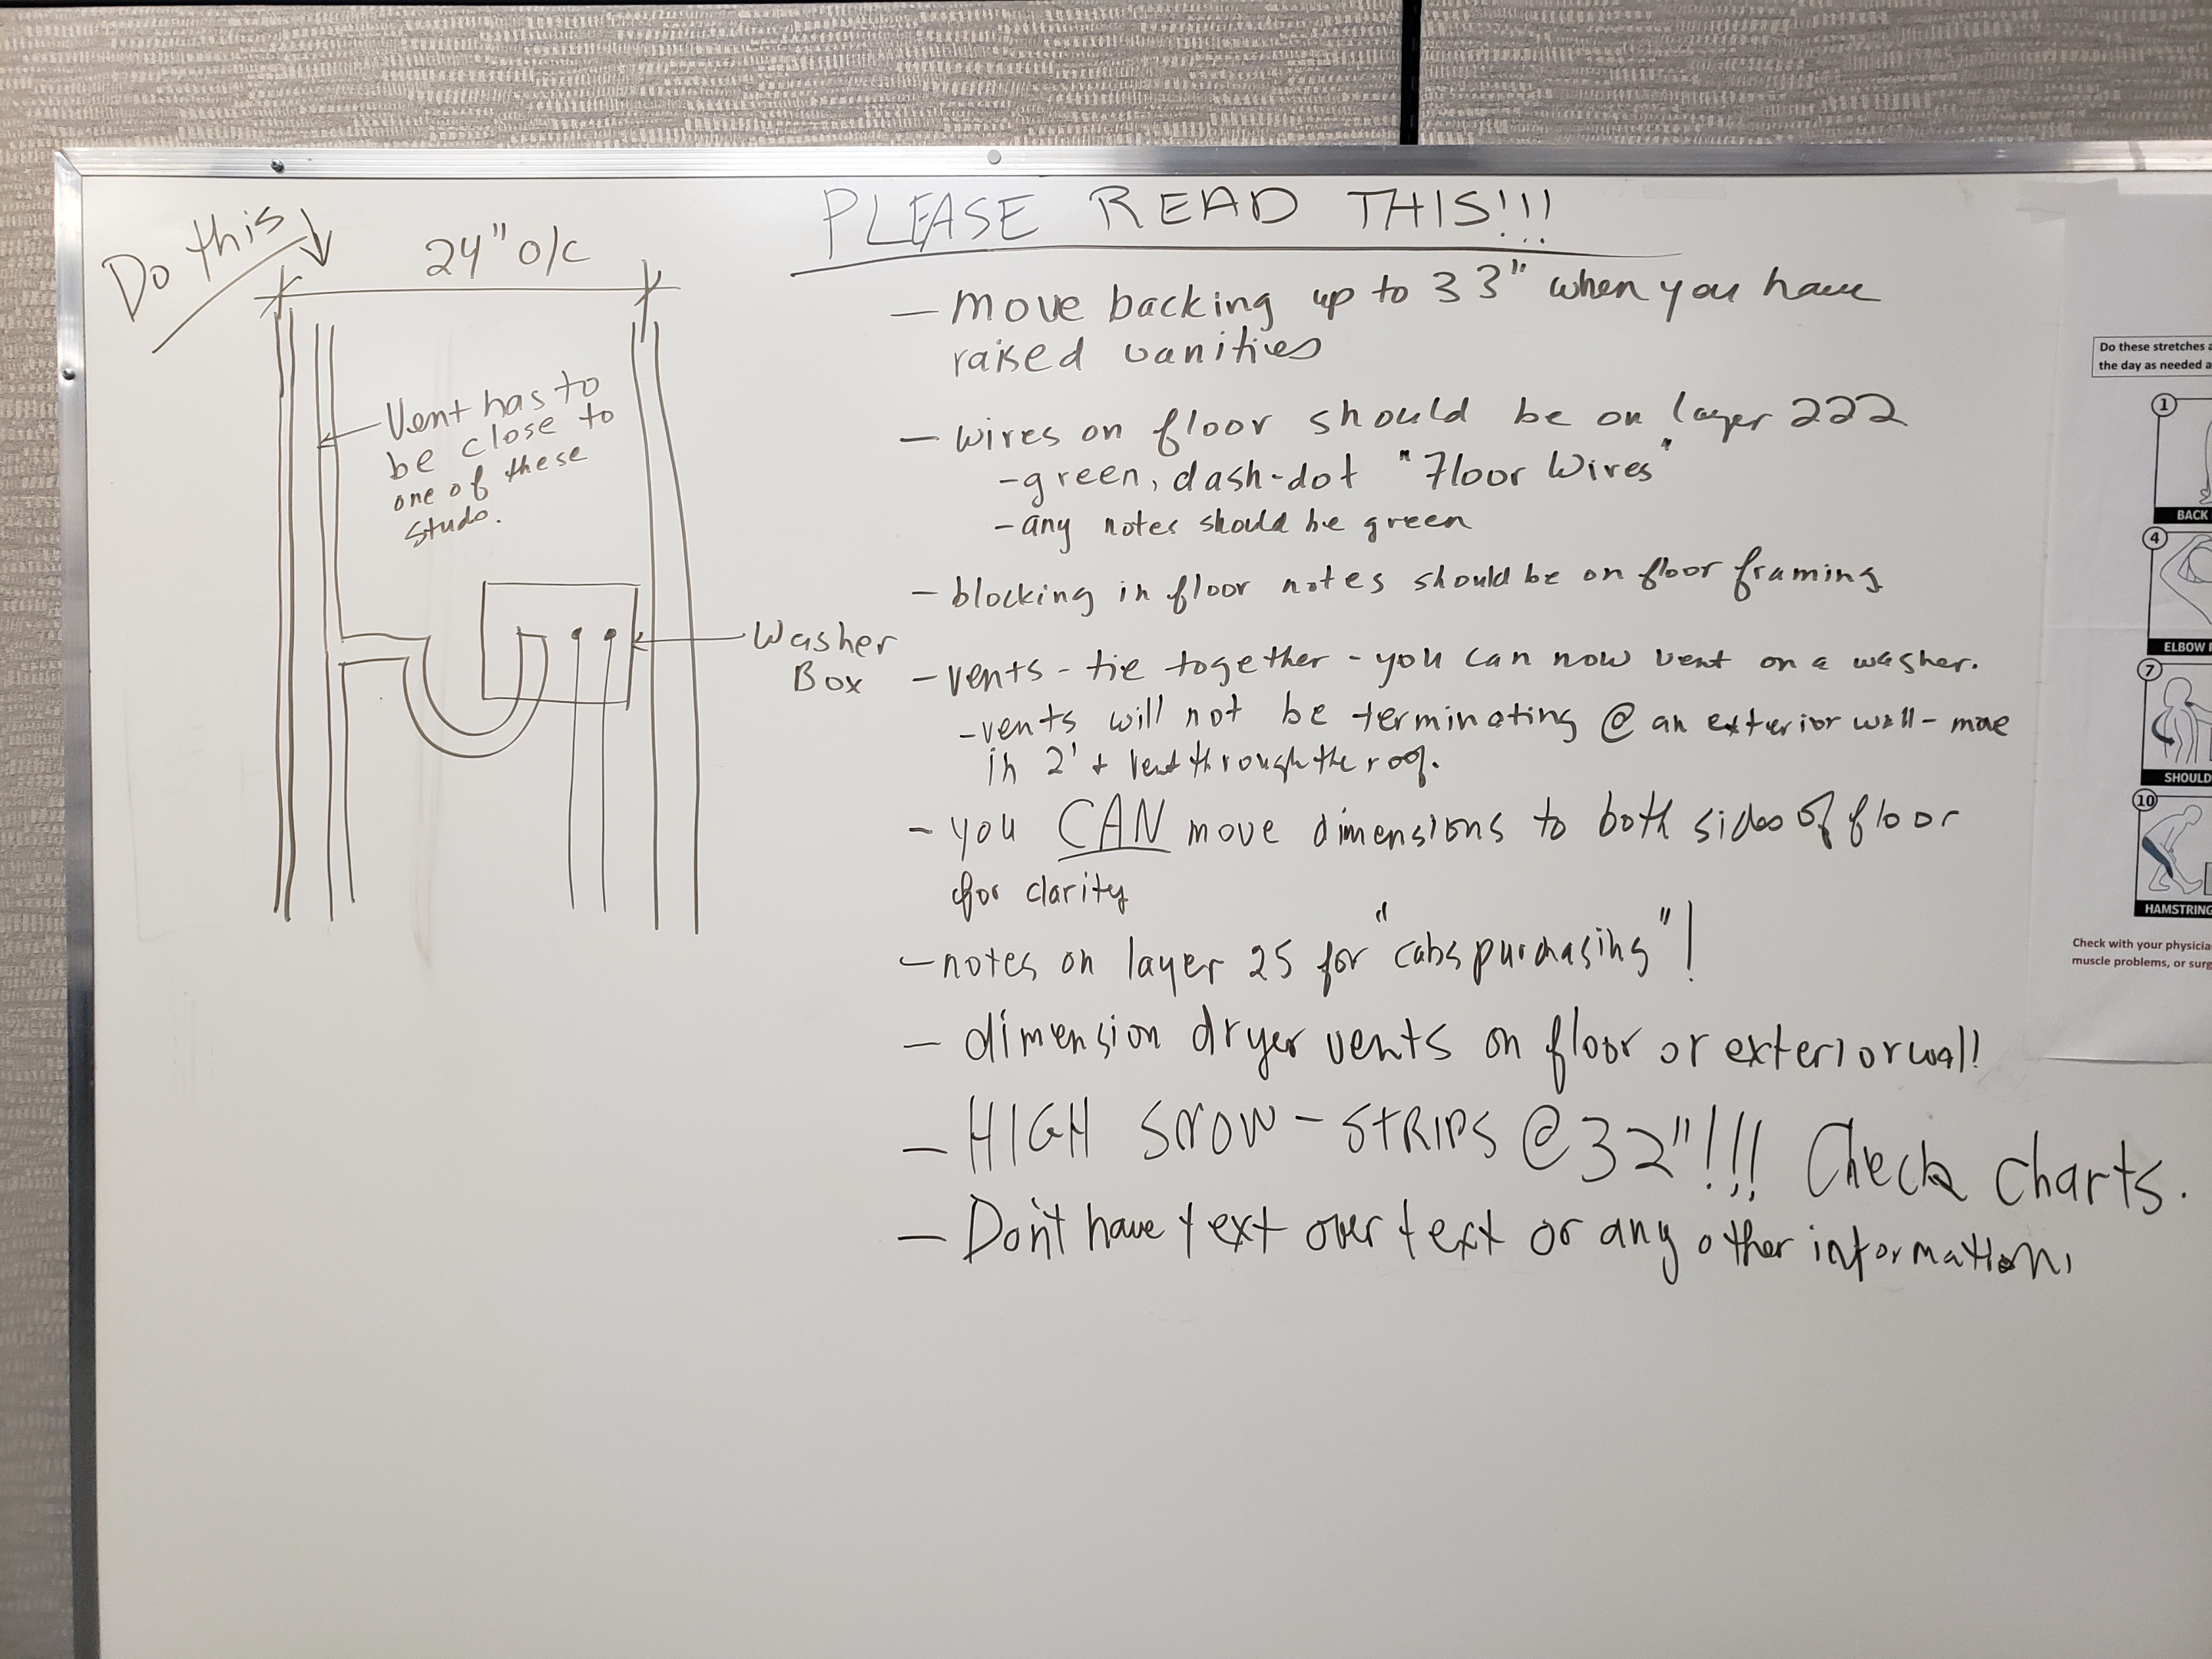 PLEASE READ THIS!!!
Do this
24" o/c
Vent has to
be close to
one of these
studs.
Washer
Box
- move backing up to 33" when you have
raised vanities
- wires on floor should be on layer 222
- green, dash-dot "Floor Wires"
- any notes should be green
- blocking in floor notes should be on floor framing
- vents - tie together - you can now vent on a washer.
- vents will not be terminating @ an exterior wall - move
in 2' + vent through the roof.
- you CAN move dimensions to both sides of floor
for clarity
- notes on layer 25 for "cabs purchasing"!
- dimension dryer vents on floor or exterior wall!
- HIGH SNOW - STRIPS @ 32"!!! Check charts.
- Don't have text over text or any other information.
Do these stretches
the day as needed
1
BACK
4
ELBOW
7
SHOULD
10
HAMSTRING
Check with your physicia
muscle problems, or surg